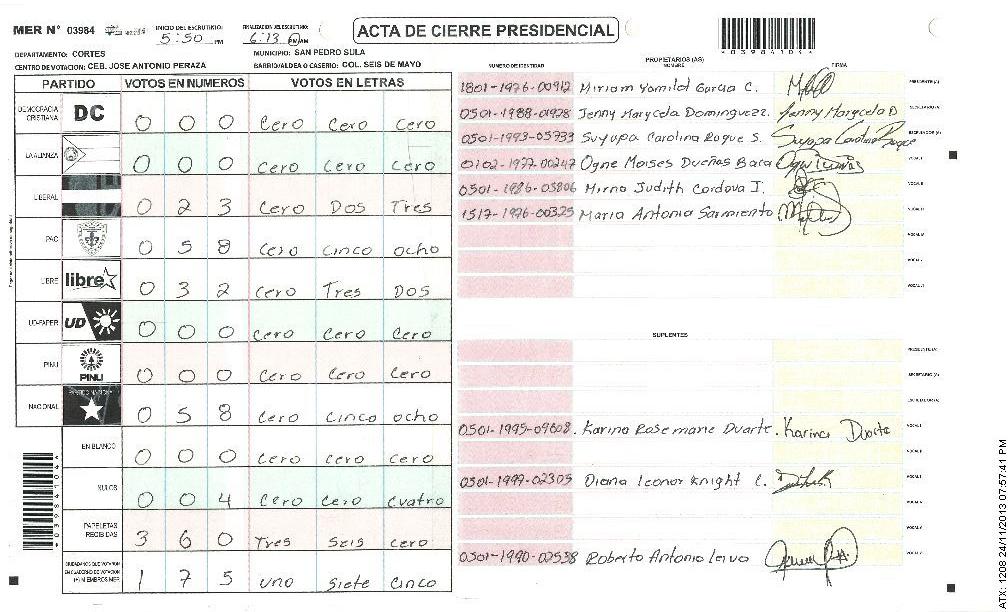 MER N° 03984
INICIO DEL ESCRUTINIO:
5:50 PM
FINALIZACION DEL ESCRUTINIO:
6:13 PM/AM
ACTA DE CIERRE PRESIDENCIAL
* 0 3 9 8 4 1 0 4 *
DEPARTAMENTO: CORTES
MUNICIPIO: SAN PEDRO SULA
CENTRO DE VOTACION: CEB. JOSE ANTONIO PERAZA
BARRIO/ALDEA O CASERIO: COL. SEIS DE MAYO
PARTIDO VOTOS EN NUMEROS VOTOS EN LETRAS
DEMOCRACIA CRISTIANA DC 0 0 0 Cero Cero Cero
LA ALIANZA 0 0 0 Cero Cero Cero
LIBERAL 0 2 3 Cero Dos Tres
PAC 0 5 8 Cero Cinco ocho
LIBRE libre 0 3 2 Cero Tres Dos
UD-FAPER UD 0 0 0 Cero Cero Cero
PINU PINU 0 0 0 Cero Cero Cero
NACIONAL 0 5 8 Cero Cinco ocho
EN BLANCO 0 0 0 Cero Cero Cero
NULOS 0 0 4 Cero Cero Cuatro
PAPELETAS RECIBIDAS 3 6 0 Tres Seis Cero
CIUDADANOS QUE VOTARON EN CUADERNO DE VOTACION (+) MIEMBROS MER 1 7 5 uno Siete Cinco
PROPIETARIOS (AS)
NUMERO DE IDENTIDAD NOMBRE FIRMA
1801-1976-00912 Miriam Yamileth Garcia C. PRESIDENTE(A)
0501-1988-01928 Jenny Marycela Dominguez. Jenny Marycela D SECRETARIO (A)
0501-1993-05733 Suyapa Carolina Roque S. Suyapa Carolina Roque ESCRUTADOR (A)
0102-1977-00247 Ogne Moises Dueñas Bara VOCAL I
0501-1986-05806 Mirna Judith Cordova I. VOCAL II
1517-1976-00325 Maria Antonia Sarmiento VOCAL III
VOCAL IV
VOCAL V
VOCAL VI
SUPLENTES
PRESIDENTE (A)
SECRETARIO (A)
ESCRUTADOR (A)
0501-1995-09608. Karina Rosemarie Duarte. Karina Duarte VOCAL I
VOCAL II
0501-1997-02305 Diana Leonor Knight C. VOCAL III
VOCAL IV
VOCAL V
0501-1990-02538 Roberto Antonio Leiva VOCAL VI
ATX: 1208 24/11/2013 07:57:41 PM